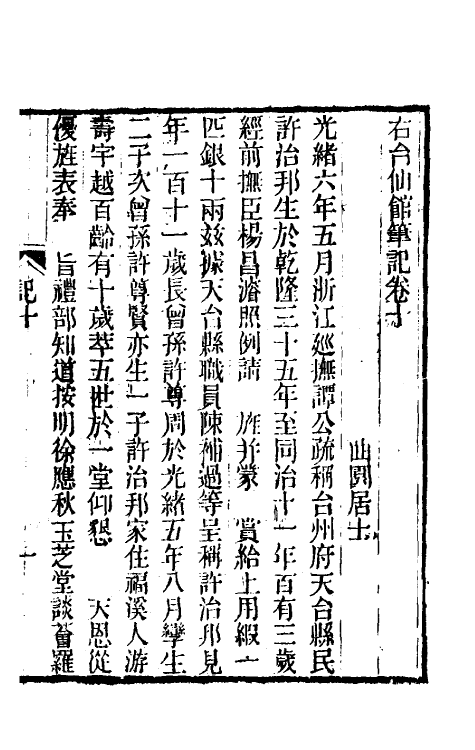 右台仙館筆記卷十
曲園居士
光緒六年五月浙江巡撫譚公疏稱台州府天台縣民
許治邦生於乾隆三十五年至同治十一年百有三歲
經前撫臣楊昌濬照例請 旌并蒙 賞給上用緞一
匹銀十兩茲據天台縣職員陳補過等呈稱許治邦見
年一百十一歲長曾孫許尊周於光緒五年八月孿生
二子次曾孫許尊賢亦生一子許治邦家住福溪人游
壽宇越百齡有十歲萃五世於一堂仰懇 天恩從
優旌表奉 旨禮部知道按明徐應秋玉芝堂談薈羅
記十
一